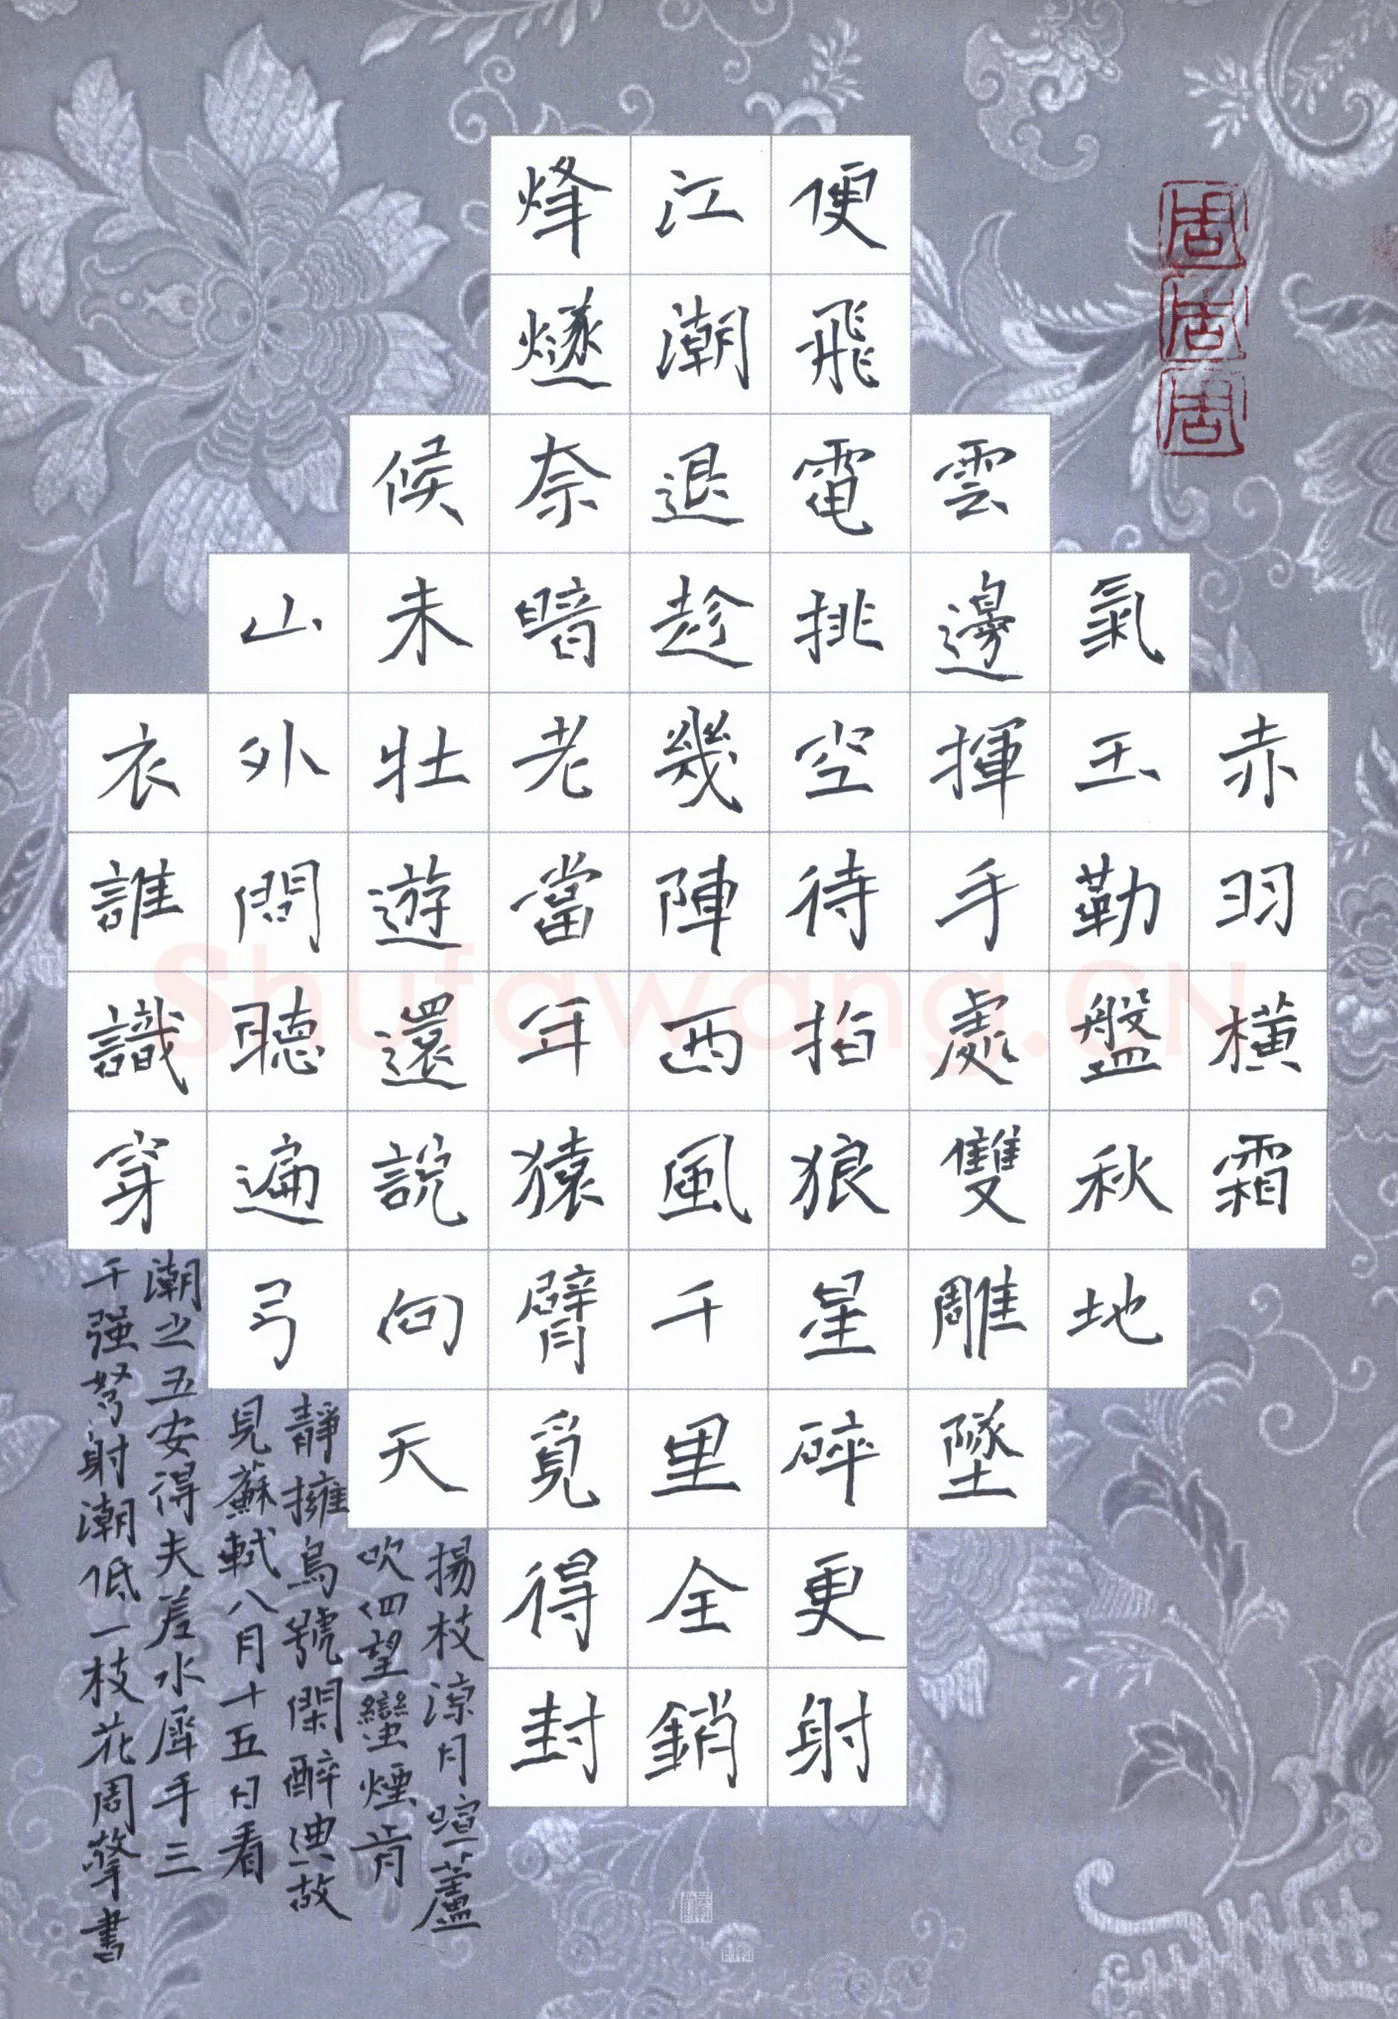 赤羽橫霜
氣玉勒盤秋地
雲邊揮手處雙雕墜
便飛電挑空待指狼星碎更射
江潮退趁幾陣西風千里全銷
烽燧奈暗老當年猿臂覓得封
候未壯遊還說向天
山外問聽遍弓
衣誰識穿
揚枝涼月喧蘆
吹四望蠻煙肯
靜擁烏號閑醉典故
見蘇軾八月十五日看
潮之五安得夫差水犀手三
千强弩射潮低一枝花周擎書
周
周
周
Shufawang.CN